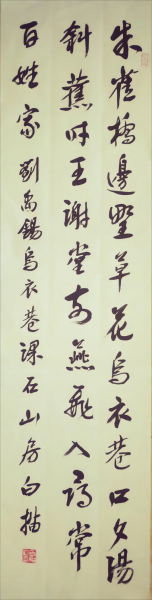 朱雀橋邊野草花烏衣巷口夕陽
斜舊時王謝堂前燕飛入尋常
百姓家 劉禹錫烏衣巷 課石山房白